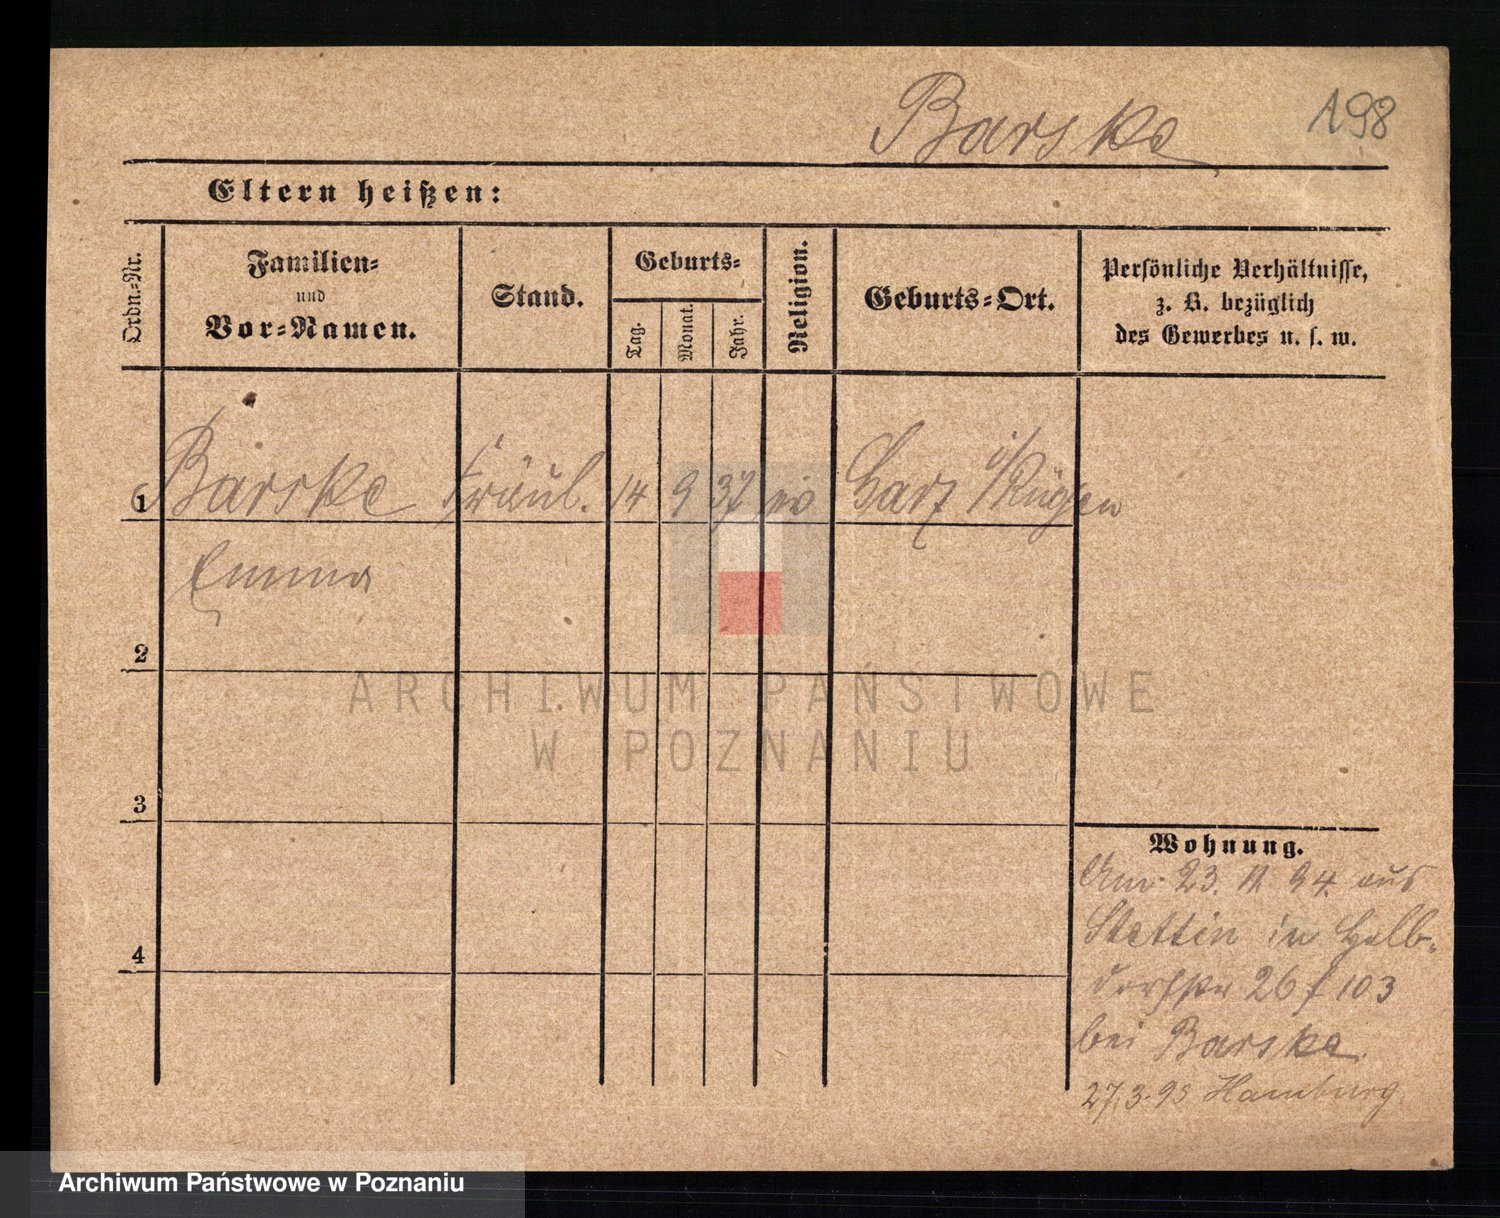 Barske 198
Eltern heißen:
Ordn.-Nr.
Familien-
und
Vor-Namen.
Stand.
Geburts-
Tag.
Monat.
Jahr.
Religion.
Geburts-Ort.
Persönliche Verhältnisse,
z. B. bezüglich
des Gewerbes u. s. w.
1 Barske Fräul. 14 9 37 ev Garz i/Rügen
Emma
2
3
4
Wohnung.
23. 11 94 aus
Stettin in Halb-
dorfstr 26 103
bei Barske.
27.3.95 Hamburg
ARCHIWUM PAŃSTWOWE
W POZNANIU
Archiwum Państwowe w Poznaniu